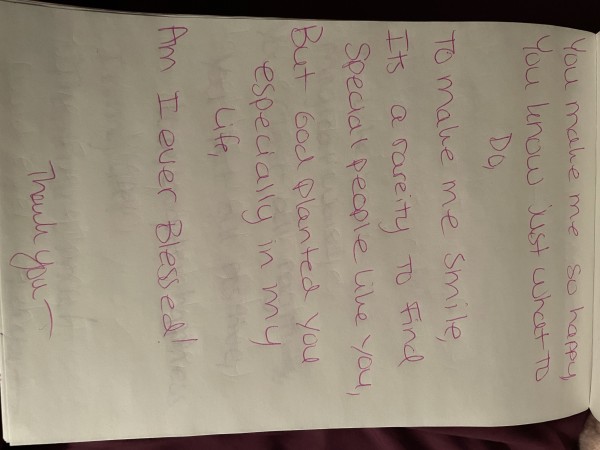 You make me so happy,
You know just what to
Do,
To make me smile,
Its a rareity to find
Special people like you,
But God planted you
especially in my
Life,
Am I ever Blessed!
Thank you—